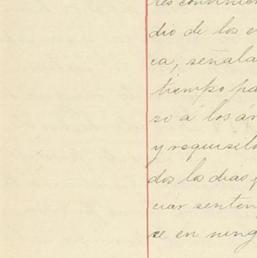 res convinie
dio de los e
ca, señala
tiempo pa
so á los ar
y requisito
dos los dias p
ciar senten
se en ning